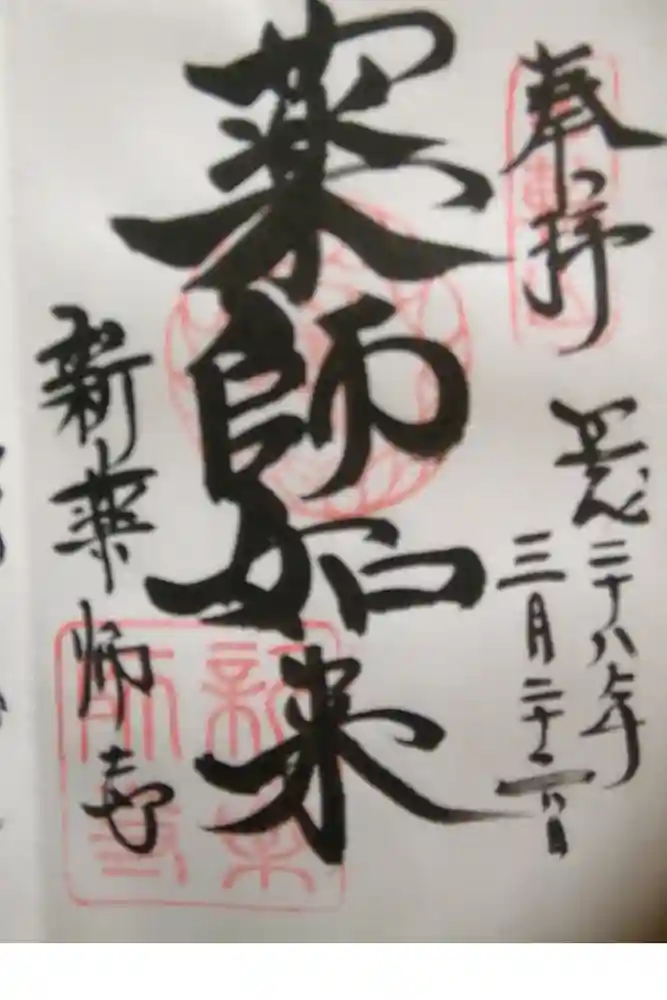 奉拝
平成二十八年
三月二十二日
薬師如来
新薬師寺
新薬師寺